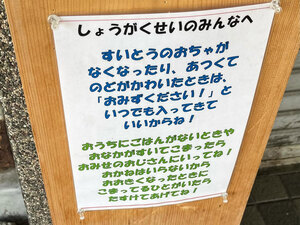 しょうがくせいのみんなへ
すいとうのおちゃが
なくなったり、あつくて
のどがかわいたときは、
「おみずください！」と
いつでも入ってきて
いいからね！
おうちにごはんがないときや
おなかがすいてこまったら
おみせのおじさんにいってね！
おかねはいらないから
おおきくなったときに
こまってるひとがいたら
たすけてあげてね！